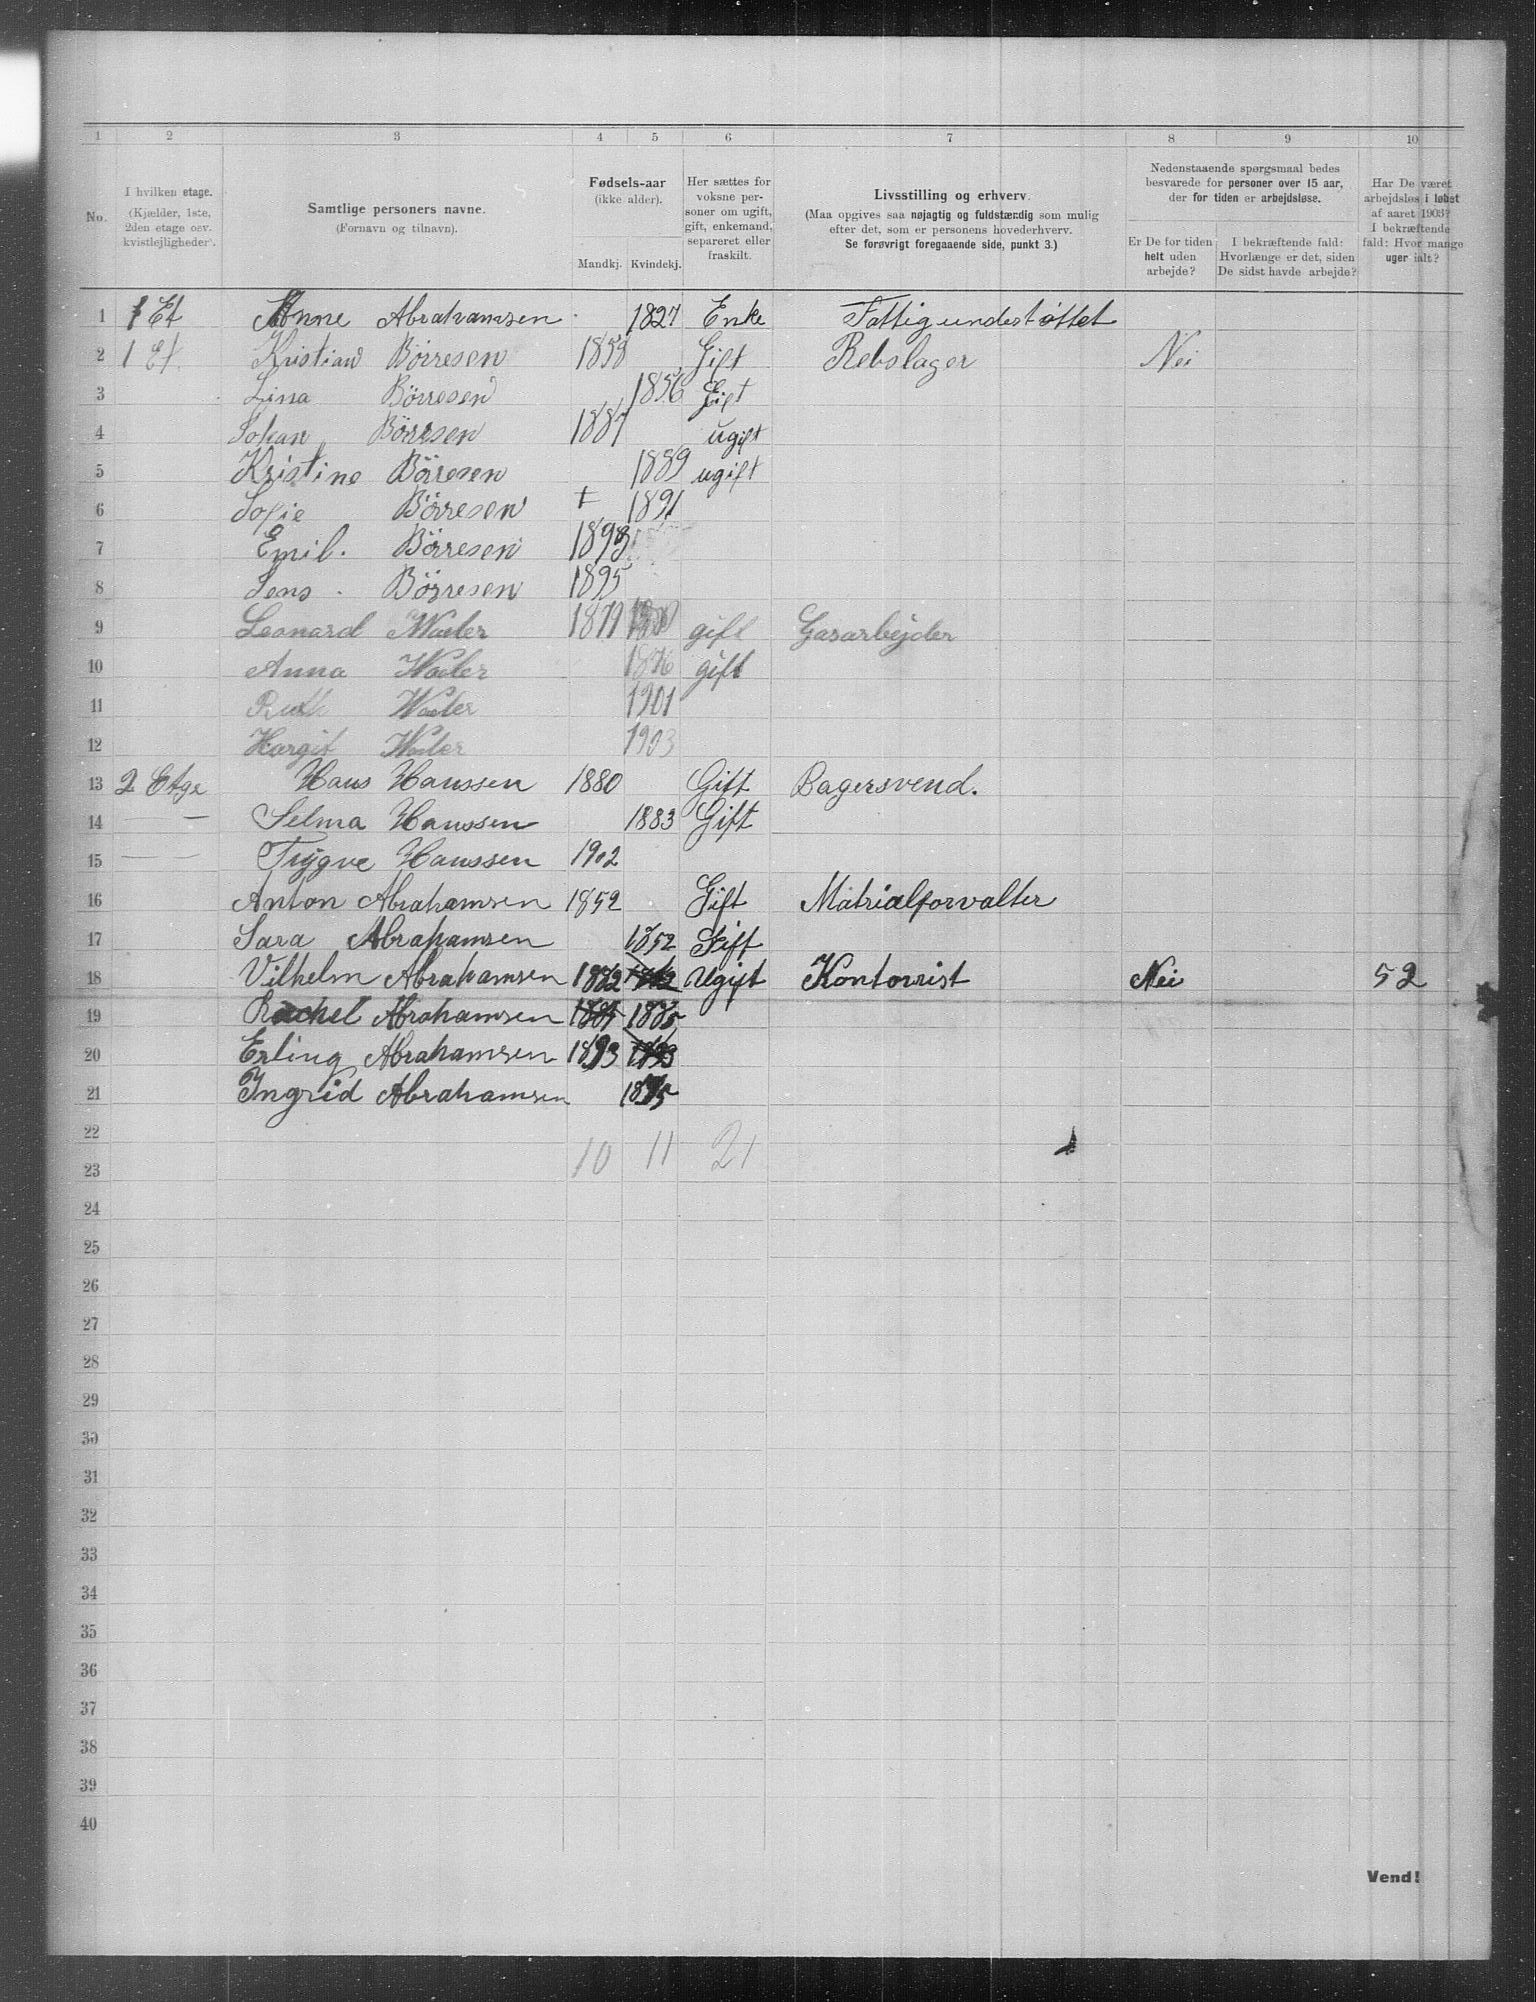 1 2 3 4 5 6 7 8 9 10
No.
I hvilken etage.
(Kjælder, 1ste,
2den etage osv.
kvistlejligheder).
Samtlige personers navne.
(Fornavn og tilnavn).
Fødsels-aar
(ikke alder).
Mandkj. Kvindekj.
Her sættes for
voksne per-
soner om ugift,
gift, enkemand,
separeret eller
fraskilt.
Livsstilling og erhverv.
(Maa opgives saa nøjagtig og fuldstændig som mulig
efter det, som er personens hovederhverv.
Se forøvrigt foregaaende side, punkt 3.)
Nedenstaaende spørgsmaal bedes
besvarede for personer over 15 aar,
der for tiden er arbejdsløse.
Er De for tiden
helt uden
arbejde?
I bekræftende fald:
Hvorlænge er det, siden
De sidst havde arbejde?
Har De været
arbejdsløs i løbet
af aaret 1903?
I bekræftende
fald: Hvor mange
uger ialt?
1 1 Et Anne Abrahamsen 1827 Enke Fattigunderstøttet
2 1 Et. Kristian Börresen 1858 Gift Rebslager Nei
3 Lina Börresen 1856 Gift
4 Johan Börresen 1887 ugift
5 Kristine Börresen 1889 ugift
6 Sofie Börresen 1891
7 Emil. Börresen 1893
8 Jens. Börresen 1895
9 Leonard 1879 gift Gasarbejder
10 Anna Waler gift
11 Ruth Waler 1901
12 Margit Waler 1903
13 2 Etge Hans Hanssen 1880 Gift Bagersvend.
14 — Selma Hanssen 1883 Gift
15 — — Trygve Hanssen 1902
16 Anton Abrahamsen 1852 Gift Matrialforvalter
17 Sara Abrahamsen 1852 Gift
18 Vilhelm Abrahamsen 1882 1882 Ugift Kontorrist Nei 52
19 Rachel Abrahamsen 1885 1885
20 Erling Abrahamsen 1893 1893
21 Ingrid Abrahamsen 1895
22
10 11 21
23
24
25
26
27
28
29
30
31
32
33
34
35
36
37
38
39
40
Vend!